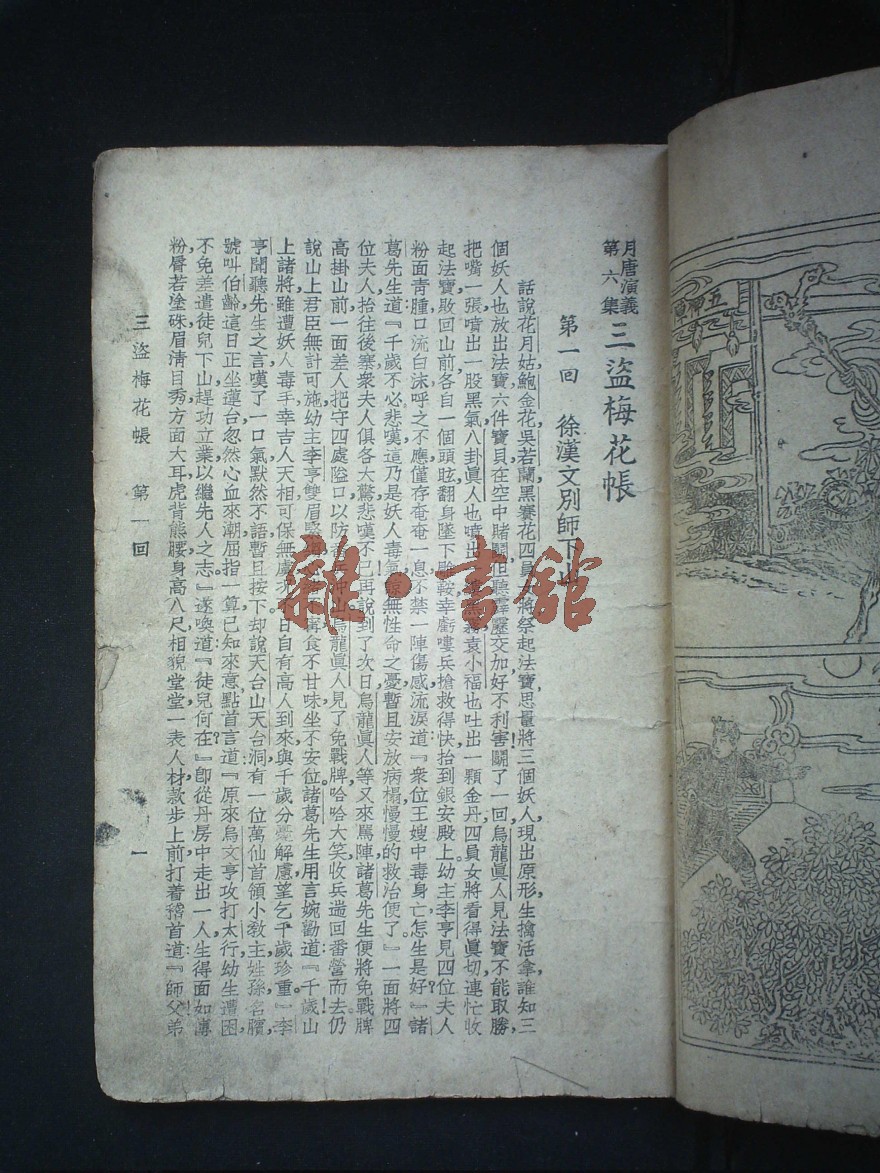 月唐演義
第六集
三盜梅花帳
第一回　徐漢文別師下山
話說花月姑鮑金花吳若蘭黑賽花四員女將祭起法寶思量將三個妖人現出原形生擒活拿誰知三
個妖人也放出法寶六件寶貝在空中賭鬭但聽霹靂交加好不利害鬭了一回烏龍眞人見法寶不能取勝
把嘴一張噴出一股黑氣八卦眞人也噴出 黑霧袁小福也吐出一顆金丹四員女將看得眞切連忙收
起法寶敗回山前各自一個頭眩翻身墜下雕鞍幸虧嘍兵搶救得快抬到銀安殿上幼主李亨見四位夫人
粉面青腫口流白沫呼之不應僅存奄奄一息不禁一陣傷感流淚道『衆位王嫂中毒身亡怎生是好?』諸
葛先生道『千歲不必悲嘆這乃是妖人毒氣 無性命之憂暫且安放病榻慢慢的救治便了』一面將四
位夫人抬往後寨衆夫人俱各大驚悲嘆不已再說到了次日烏龍眞人等又來罵陣諸葛先生便將免戰牌
高掛山前一面差人把守四處隘口以防番兵冲山烏龍眞人見了免戰牌哈哈大笑收兵耑回番營而去仍
說山上君臣無計可施幼主李亨雙眉 寢食不甘味坐不安位諸葛先生用言婉勸道『千歲山
上諸將雖遭妖人毒手幸吉人天相可保無慮不日自有高人到來與千歲分憂解慮望乞千歲珍重』李
亨聞聽先生之言嘆了一口氣默然不語暫且按下却說天台山天台洞有一位萬仙首領小教主姓孫名臏
號叫伯齡這日正坐蓮台忽然心血來潮屈指一算已知來意點首言道『原來烏文亨攻打太行幼主遭困
不免差遣徒兒下山趕功立業以繼先人之志』遂喚道『徒兒何在?』卽從丹房中走出一人生得面如傅
粉脣若塗硃眉淸目秀方面大耳虎背熊腰身高八尺相貌堂堂一表人材款步上前打着稽首道『師父弟
三盜梅花帳　第一回
一
雜·書館
五